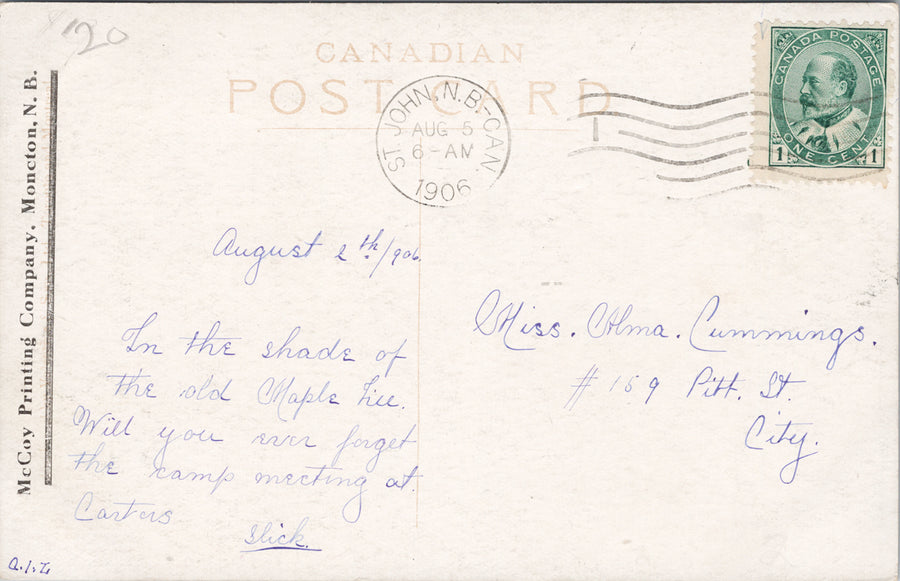 '20
CANADIAN
POST CARD
McCoy Printing Company, Moncton, N. B.
ST. JOHN, N.B.-CAN
AUG 5
6-AM
1906
CANADA POSTAGE
1 ONE CENT 1
August 2th/906.
In the shade of
the old Maple Tree.
Will you ever forget
the camp meeting at
Carters
Slick.
Miss. Alma. Cummings.
# 159 Pitt. St.
City.